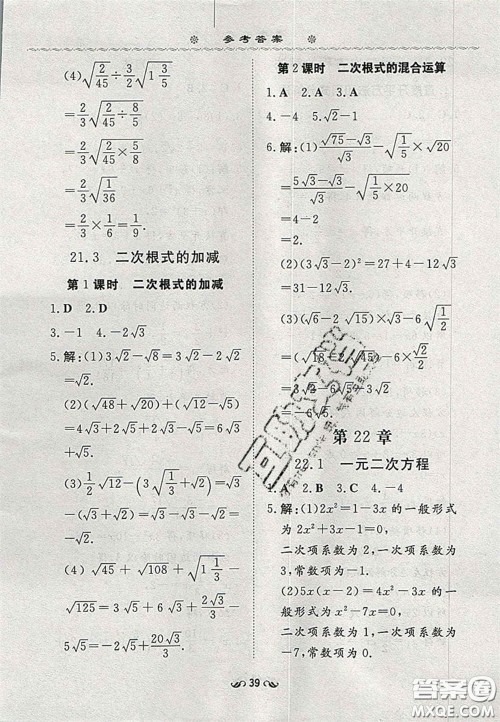 参考答案
(4)√(2/45)÷(2/3)√(1 3/5)
=(2/3)√(2/45÷8/5)
=(2/3)√(2/45×5/8)
=(2/3)√(1/36)
=2/3×1/6=1/9.
21.3 二次根式的加减
第1课时 二次根式的加减
1.D 2.D
3.-1 4.-2√3
5.解:(1)3√2-√8=3√2-2√2
=√2.
(2)(√48+√20)+(√12-√5)=
4√3+2√5+2√3-√5=6√3+
√5.
(3)(1/2)√12-√(1/3)+√2(√2-1)
=√3-√3/3+2-√2=2√3/3+2
-√2.
(4)√45+√108+√(1 1/3)-
√125=3√5+6√3+2√3/3-
5√5=-2√5+20√3/3.
第2课时 二次根式的混合运算
1.A 2.A 3.A
4.-2 5.√2-1
6.解:(1)(√75-√3)/√3-√(1/5)×√20
=(5√3-√3)/√3-√(1/5×20)
=4-2
=2.
(2)(3√2-2√3)²
=18-12√6+12
=30-12√6.
(3)(√6-2√15)×√3-6√(1/2)
=3√2-6√5-3√2
=-6√5.
第22章
22.1 一元二次方程
1.A 2.B 3.C 4.-4
5.解:(1)2x²=1-3x的一般形式
为2x²+3x-1=0,
二次项系数为2,一次项系数为
3,常数项为-1.
(2)5x(x-2)=4x²-3x的一
般形式为x²-7x=0,
二次项系数为1,一次项系数为
-7,常数项为0.
39
答案圈
MXQE.COM